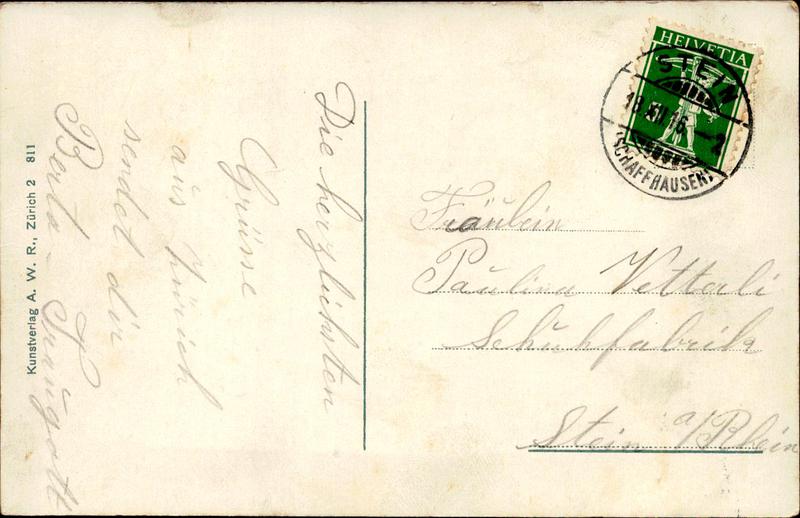 Die herzlichsten
Grüsse
aus Zürich
sendet dir
Berta - Traugott
Kunstverlag A. W. R., Zürich 2 811
HELVETIA
STEIN
18.XII.16.-2
(SCHAFFHAUSEN)
Fräulein
Paulina Vetterli
Schuhfabrik
Stein a/Rhein